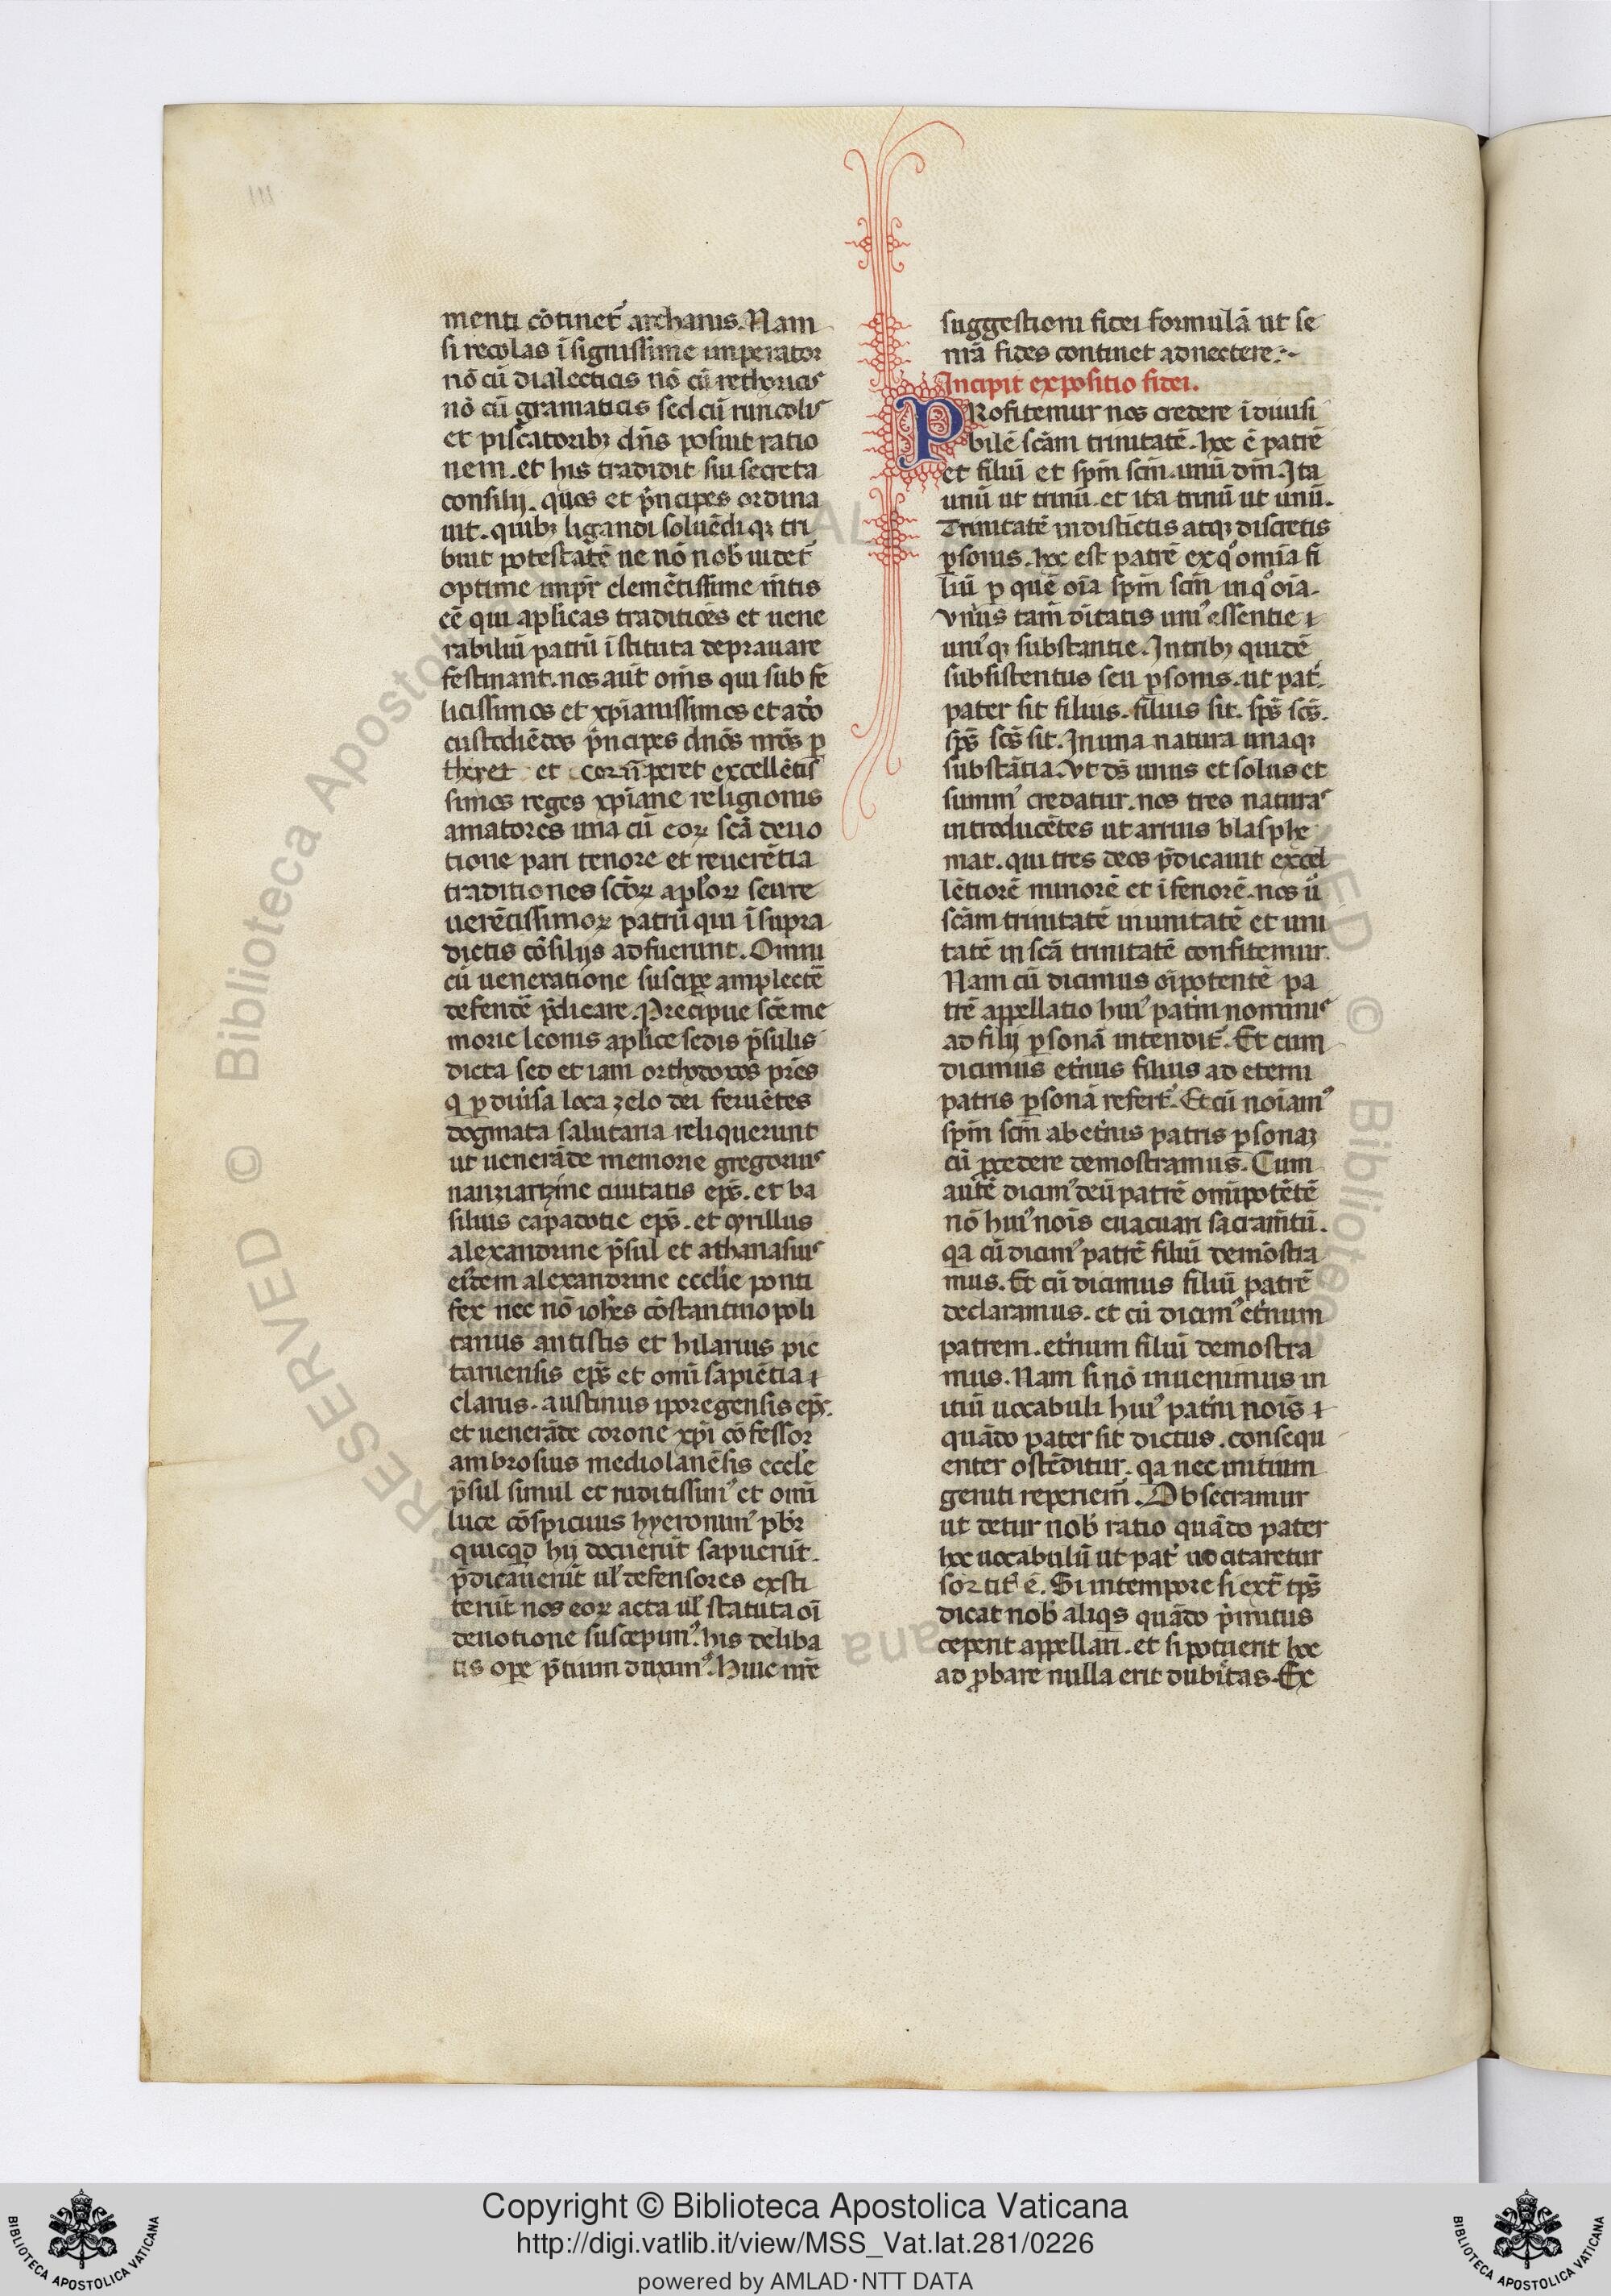 menti cōtinet᷑ archanis. Nam
si recolas ī signissime imperator
nō cū dialecticis nō cū rethoricis
nō cū gramaticis sed cū ruricolis
et piscatoribꝫ dn̄s posiut ratio
nem. et his tradidit sui secreta
consilij. quos et p̄ncipes ordina
uit. quibꝫ ligandi soluēdi qꝫ tri
buit potestatē ne nō nob̄ uidet᷑
optime imp̄r clemētissime m̄tis
eē̄ qui aplicas traditiōes et uene
rabiliū patrū ī stituta deprauare
festinant. nos aūt om̄s qui sub fe
licissimos et xp̄ianissimos et a do
custodiēdos p̄ncipes dn̄os nr̄os ꝑ
theret et corūperet excellētis
simos reges xp̄iane religionis
amatores una cū eoꝝ scā deuo
tione pari tenore et reuerētia
traditiones scōꝝ apl̄oꝝ seu re
uerētissimoꝝ patrū qui ī supra
dictis cōsilijs adfuerunt. Omni
cū ueneratione suscipe amplectē
defendē p̄dicare. Precipue scē me
morie leonis aplice sedis p̄sulis
dicta sed et iam orthodoxos pr̄es
q ꝑ diuisa loca zelo dei feruētes
dogmata salutaria reliquerunt
ut uenerāde memorie gregorius
nanziartzine ciuitatis ep̄s. et ba
silius capadotie ep̄s. et cyrillus
alexandrine p̄sul et athanasius
eiƌem alexandrine ecclīe ponti
fex nec nō ioh̄es cōstantinopoli
tanus antistis et hilarius pic
tauiensis ep̄s et omī sapiētia ⁊
clarus. austinus iporegensis ep̄s.
et uenerāde corone xp̄i cō fessor
ambrosius mediolanēsis eccle
p̄sul simul et ruditissimꝰ et omī
luce cōspicuus hyeronimꝰ pb̄r
quicq̄d hij docuerūt sapuerūt.
p̄dicauerūt ul̄ defensores exsti
terūt nos eoꝝ acta ul̄ statuta oī
deuotione suscepimꝰ. his deliba
tis ope p̄tium duximꝰ. Huic nr̄e
suggestioni fidei formulā ut se
mā fides continet adnectere.
Incipit expositio fidei.
PRofitemur nos credere ī diuisi
bilē scām trinitatē. hoc ē patrē
et filiū et sp̄m scm̄. unū dm̄. Ita
unū ut trinū. et ita trinū ut unū.
Trinitatē indistictis atqꝫ discretis
ꝑsonis. hoc est patrē ex qͦ omīa fi
liū ꝑ quē oīa sp̄m scm̄ in qͦ oīa.
vnius tam̄ dītatis uniꝰ essentie ⁊
uniꝰ qꝫ substantie. In tribꝫ quidē
subsistentiis seu ꝑsonis. ut pat᷑.
pater sit filius. filius sit. sp̄s sc̄s.
sp̄s sc̄s sit. In una natura unaqꝫ
substātia. Vt ds̄ unus et solus et
summꝰ credatur. nos tres naturas
introducētes ut arrius blasphe
mat. qui tres deos p̄dicauit excel
lētiorē minorē et ī feriorē. nos ū
scām trinitatē in unitatē et uni
tatē in scā trinitatē confitemur.
Nam cū dicimus oīpotentē pa
trē appellatio huiꝰ pat᷑ni nominis
ad filij ꝑsonā intendit᷑. Et cum
dicimus et᷑nus filius ad eterni
patris ꝑsonā refert᷑. Et cū noīamꝰ
sp̄m scm̄ ab et᷑nis patris ꝑsonaꝫ
cū ꝓcedere demostramus. Cum
autē dicimꝰ deū patrē omīpotētē
nō huiꝰ nois euacuari sacram̄tū.
qa cū dicimꝰ patrē filiū demōstra
mus. Et cū dicimus filiū patrē
declaramus. et cū dicimꝰ et᷑num
patrem. et᷑num filiū demostra
mus. Nam si nō inuenimus in
itiū uocabuli huiꝰ pat᷑ni nois ⁊
quādo pater sit dictus. consequ
enter ostēditur. qa nec initium
geniti reperiem̄. Obsecramur
ut detur nob̄ ratio quādo pater
hoc uocabulū ut pat᷑ uocitaretur
sortit᷑ ē. Si in tempore si ext̄ tp̄s
dicat nob̄ aliqs quādo p̄mitus
ceperit appellari. et si potuerit hoc
ad ꝓbare nulla erit dubitas. Ex
Copyright © Biblioteca Apostolica Vaticana
http://digi.vatlib.it/view/MSS_Vat.lat.281/0226
powered by AMLAD·NTT DATA